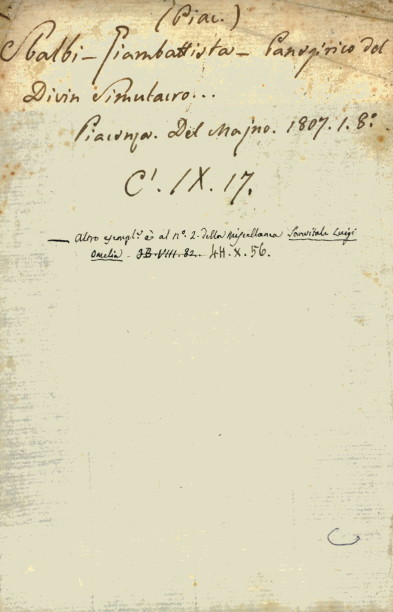 (Piac.)
Sbalbi - Giambattista - Panegirico del
Divin Simulacro...
Piacenza. Del Majno. 1807. 1. 8º
C'. IX. 17.
— Altro esempl.e è al nº. 2. della Miscellanea Sanvitale Luigi
Omelia. JB. VIII. 82. 4H. X. 56.